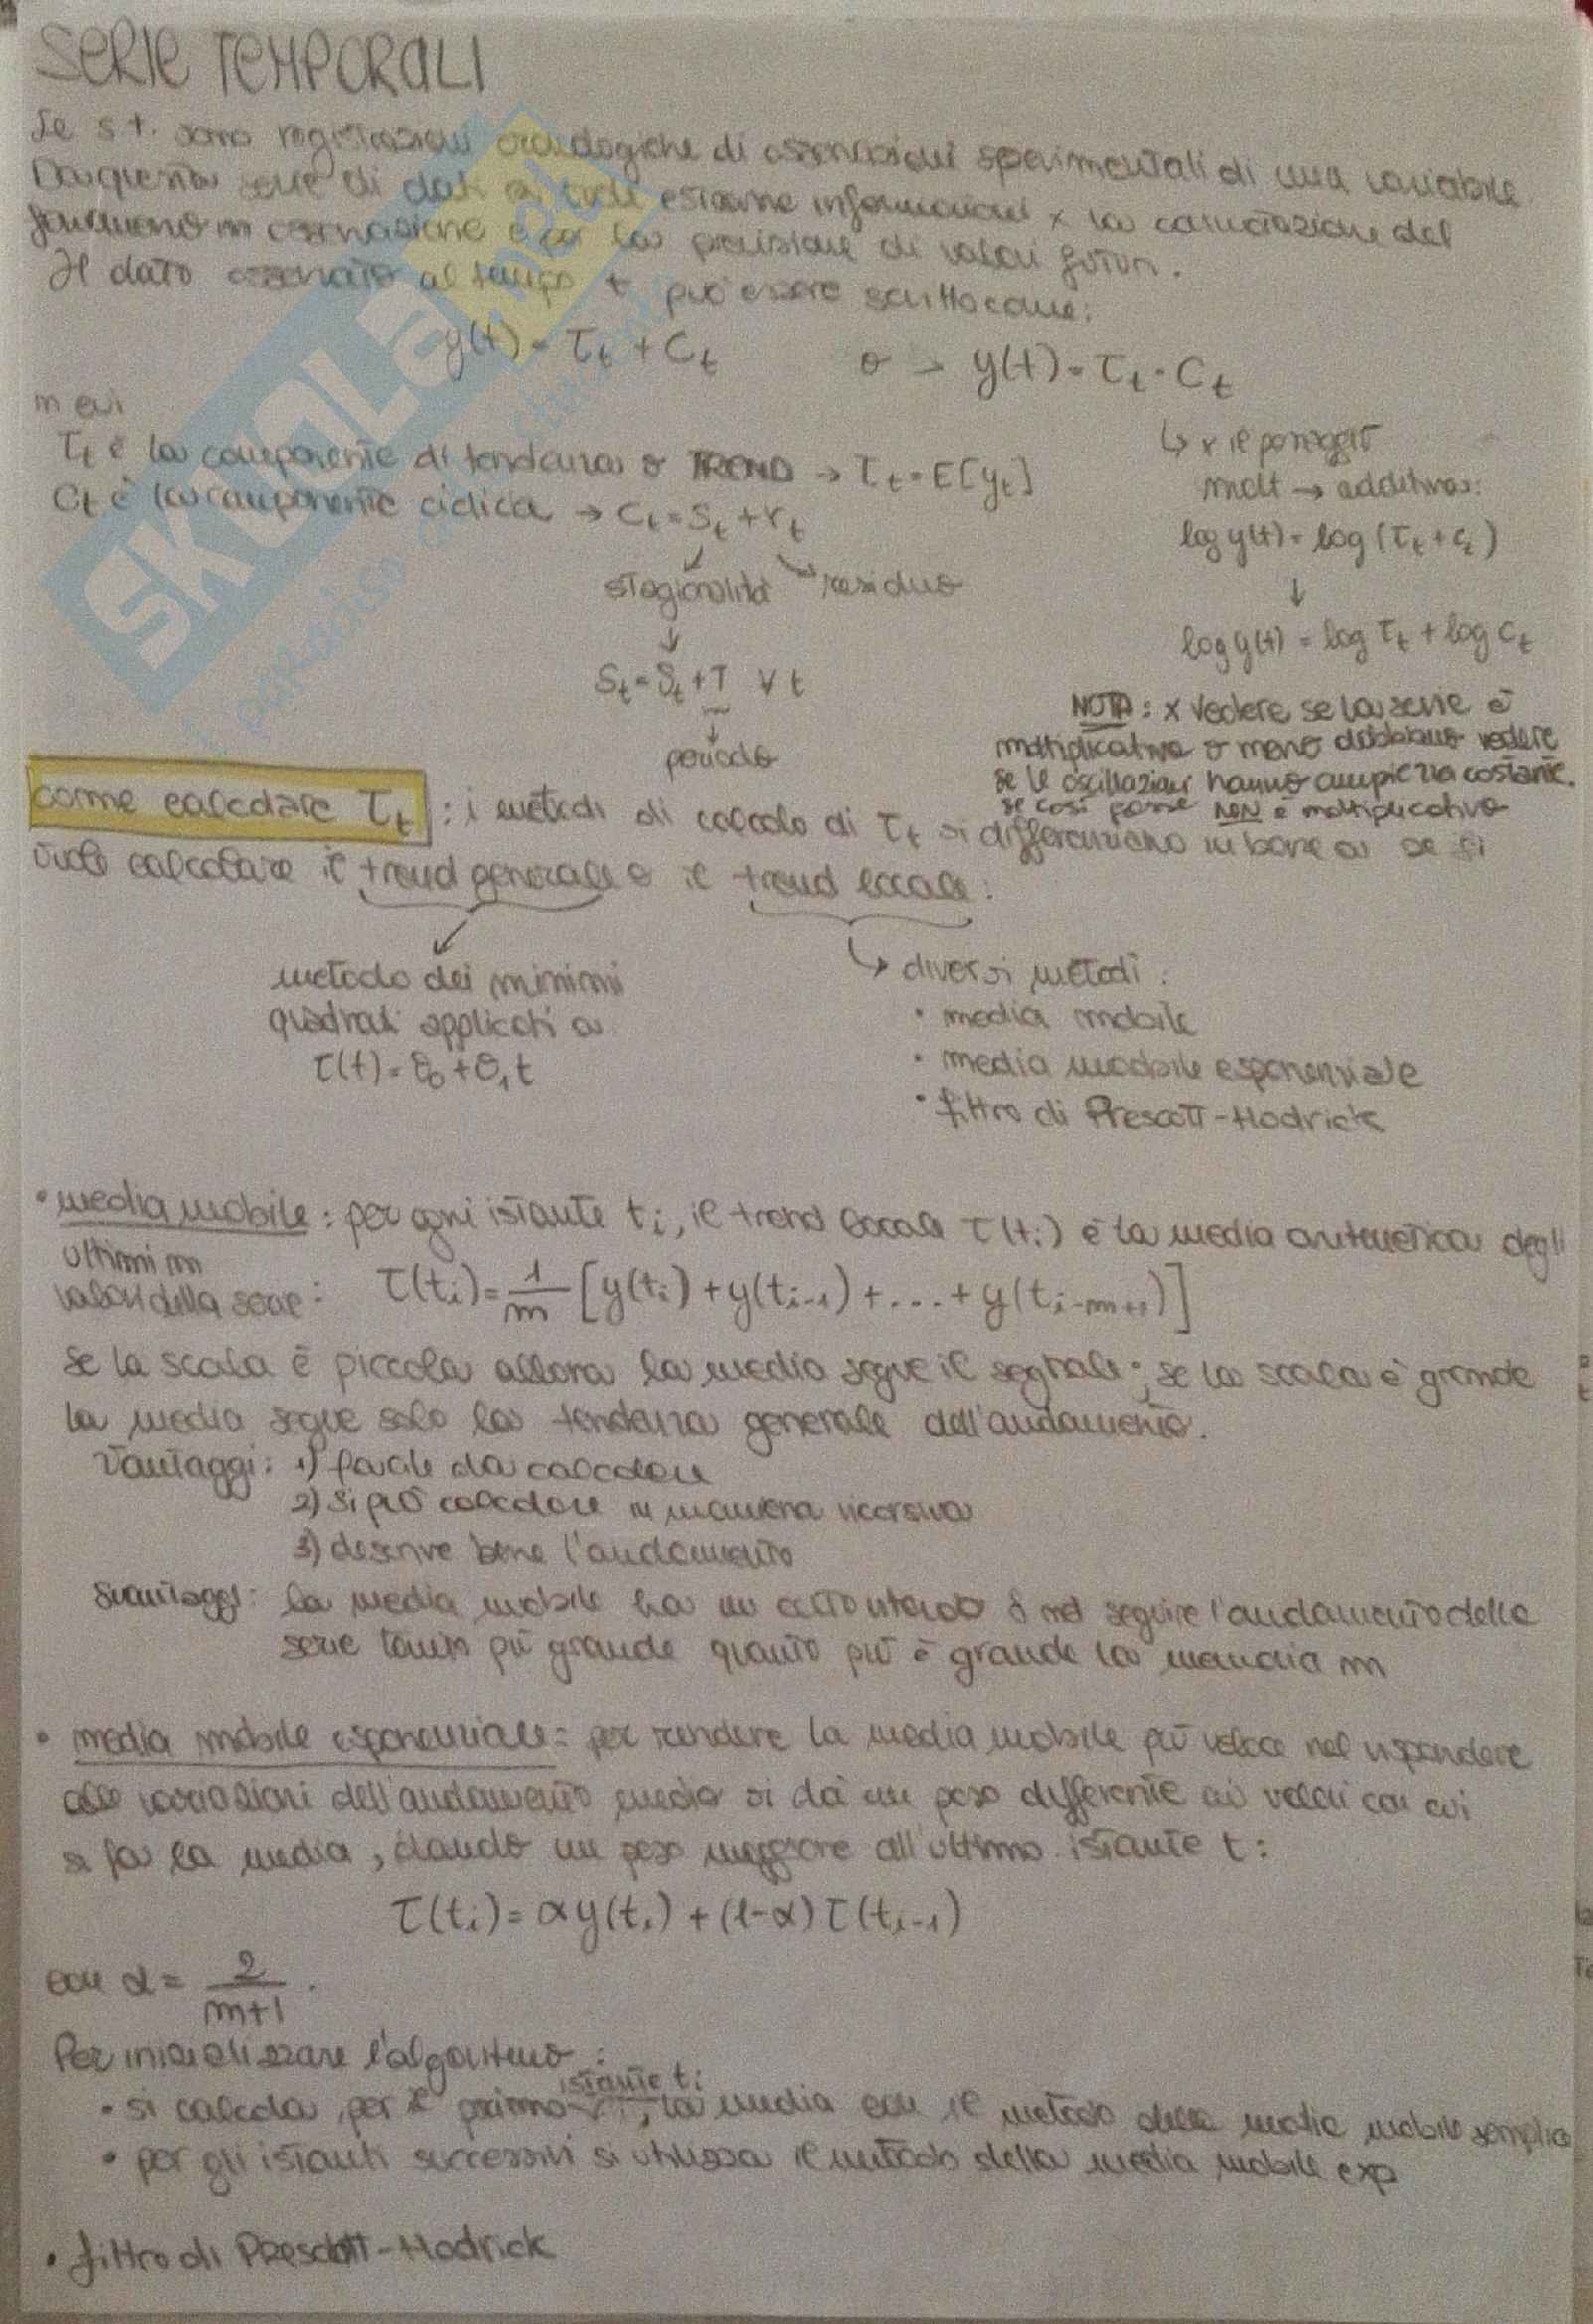 SERIE TEMPORALI
Le s.t. sono registrazioni cronologiche di osservazioni sperimentali di una variabile.
Da questa serie di dati si vuole estrarre informazioni x la caratterizzazione del
fenomeno in osservazione e per la previsione di valori futuri.
Il dato osservato al tempo t può essere scritto come:
y(t) = τt + Ct o → y(t) = τt · Ct
in cui
τt è la componente di tendenza o TREND → τt = E[yt]
Ct è la componente ciclica → Ct = St + rt
↳ x il passaggio
molt → additiva:
log y(t) = log (τt + ct)
↓
log y(t) = log τt + log ct
stagionalità residuo
↓
St = St + T ∀ t
↓
periodo
NOTA: x vedere se la serie è
moltiplicativa o meno dobbiamo vedere
se le oscillazioni hanno ampiezza costante.
se così fosse NON è moltiplicativa
come calcolare τt : i metodi di calcolo di τt si differenziano in base a se si
vuole calcolare il trend generale o il trend locale:
metodo dei minimi
quadrati applicati a
τ(t) = θ0 + θ1 t
↳ diversi metodi:
• media mobile
• media mobile esponenziale
• filtro di Prescott-Hodrick
• media mobile: per ogni istante ti, il trend locale τ(ti) è la media aritmetica degli
ultimi m
valori della serie: τ(ti) = 1/m [y(ti) + y(ti-1) + ... + y(ti-m+1)]
Se la scala è piccola allora la media segue il segnale; se la scala è grande
la media segue solo la tendenza generale dell'andamento.
Vantaggi: 1) facile da calcolare
2) si può calcolare in maniera ricorsiva
3) descrive bene l'andamento
Svantaggi: la media mobile ha un certo ritardo δ nel seguire l'andamento della
serie tanto più grande quanto più è grande la m
• media mobile esponenziale: per rendere la media mobile più veloce nel rispondere
alle variazioni dell'andamento medio si dà un peso differente ai valori con cui
si fa la media, dando un peso maggiore all'ultimo istante t:
τ(ti) = αy(ti) + (1-α) τ(ti-1)
con α = 2/m+1 .
Per inizializzare l'algoritmo:
• si calcola, per il primo istante ti, la media con il metodo della media mobile semplice
• per gli istanti successivi si utilizza il metodo della media mobile exp
• filtro di Prescott-Hodrick
SKUOLA.net